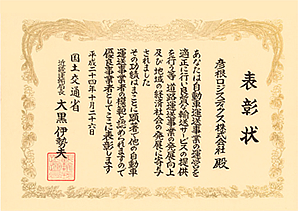 表彰状
彦根ロジスティクス株式会社 殿
あなたは自動車運送事業の運営を
適正に行い良質な輸送サービスの提供
を行う等 道路運送事業の発展向上
及び地域の経済社会の発展に寄与
されました
その功績はまことに顕著で他の自動車
運送事業者の模範と認められますので
優良事業者としてここに表彰します
平成二十四年十月二十六日
国土交通省
近畿運輸局長
大黒伊勢夫